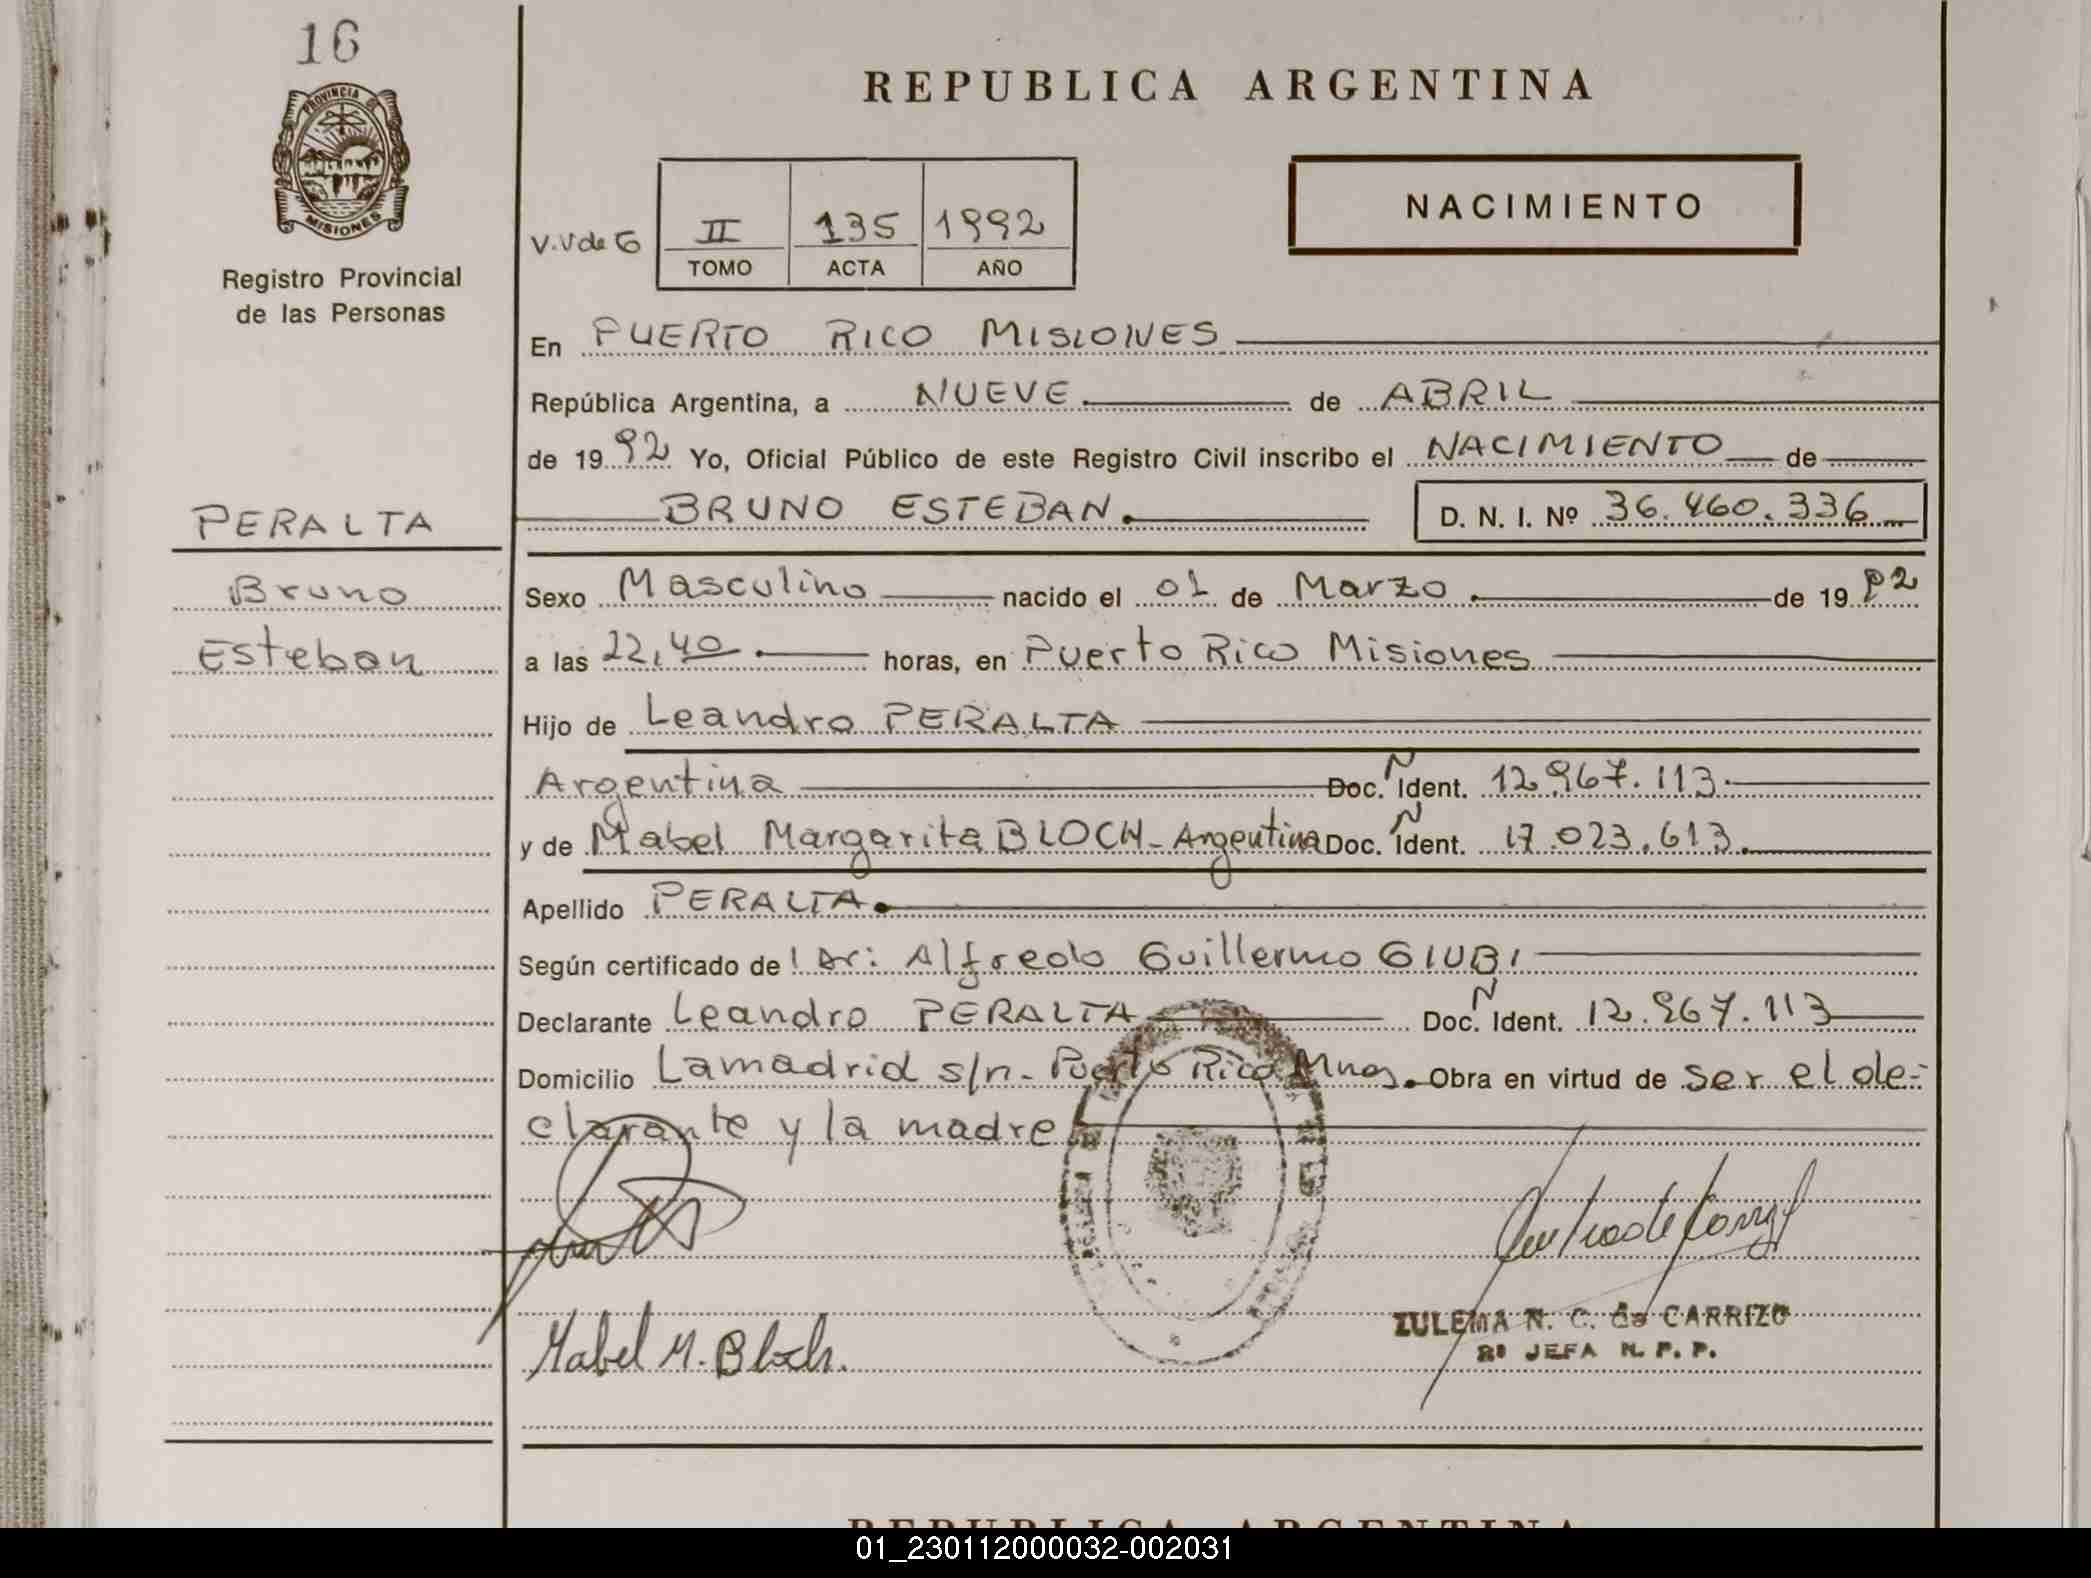 16
PROVINCIA DE
MISIONES
Registro Provincial
de las Personas
REPUBLICA ARGENTINA
NACIMIENTO
V.V de G
II 135 1992
TOMO ACTA AÑO
En PUERTO RICO MISIONES
República Argentina, a NUEVE de ABRIL
de 1992 Yo, Oficial Público de este Registro Civil inscribo el NACIMIENTO de
BRUNO ESTEBAN. D. N. I. Nº 36.460.336
PERALTA
Bruno
Esteban
Sexo Masculino nacido el 01 de Marzo de 1992
a las 22,40 horas, en Puerto Rico Misiones
Hijo de Leandro PERALTA
Argentina Doc. N Ident. 12.967.113
y de Mabel Margarita BLOCH - Argentina Doc. N Ident. 17.023.613.
Apellido PERALTA.
Según certificado de Dr: Alfredo Guillermo GIUBI
Declarante Leandro PERALTA Doc. N Ident. 12.967.113
Domicilio Lamadrid s/n - Puerto Rico Mnes. Obra en virtud de ser el de-
clarante y la madre
Mabel M. Bloch.
ZULEMA N. C. de CARRIZO
JEFA R. P. P.
REPUBLICA ARGENTINA
01_230112000032-002031